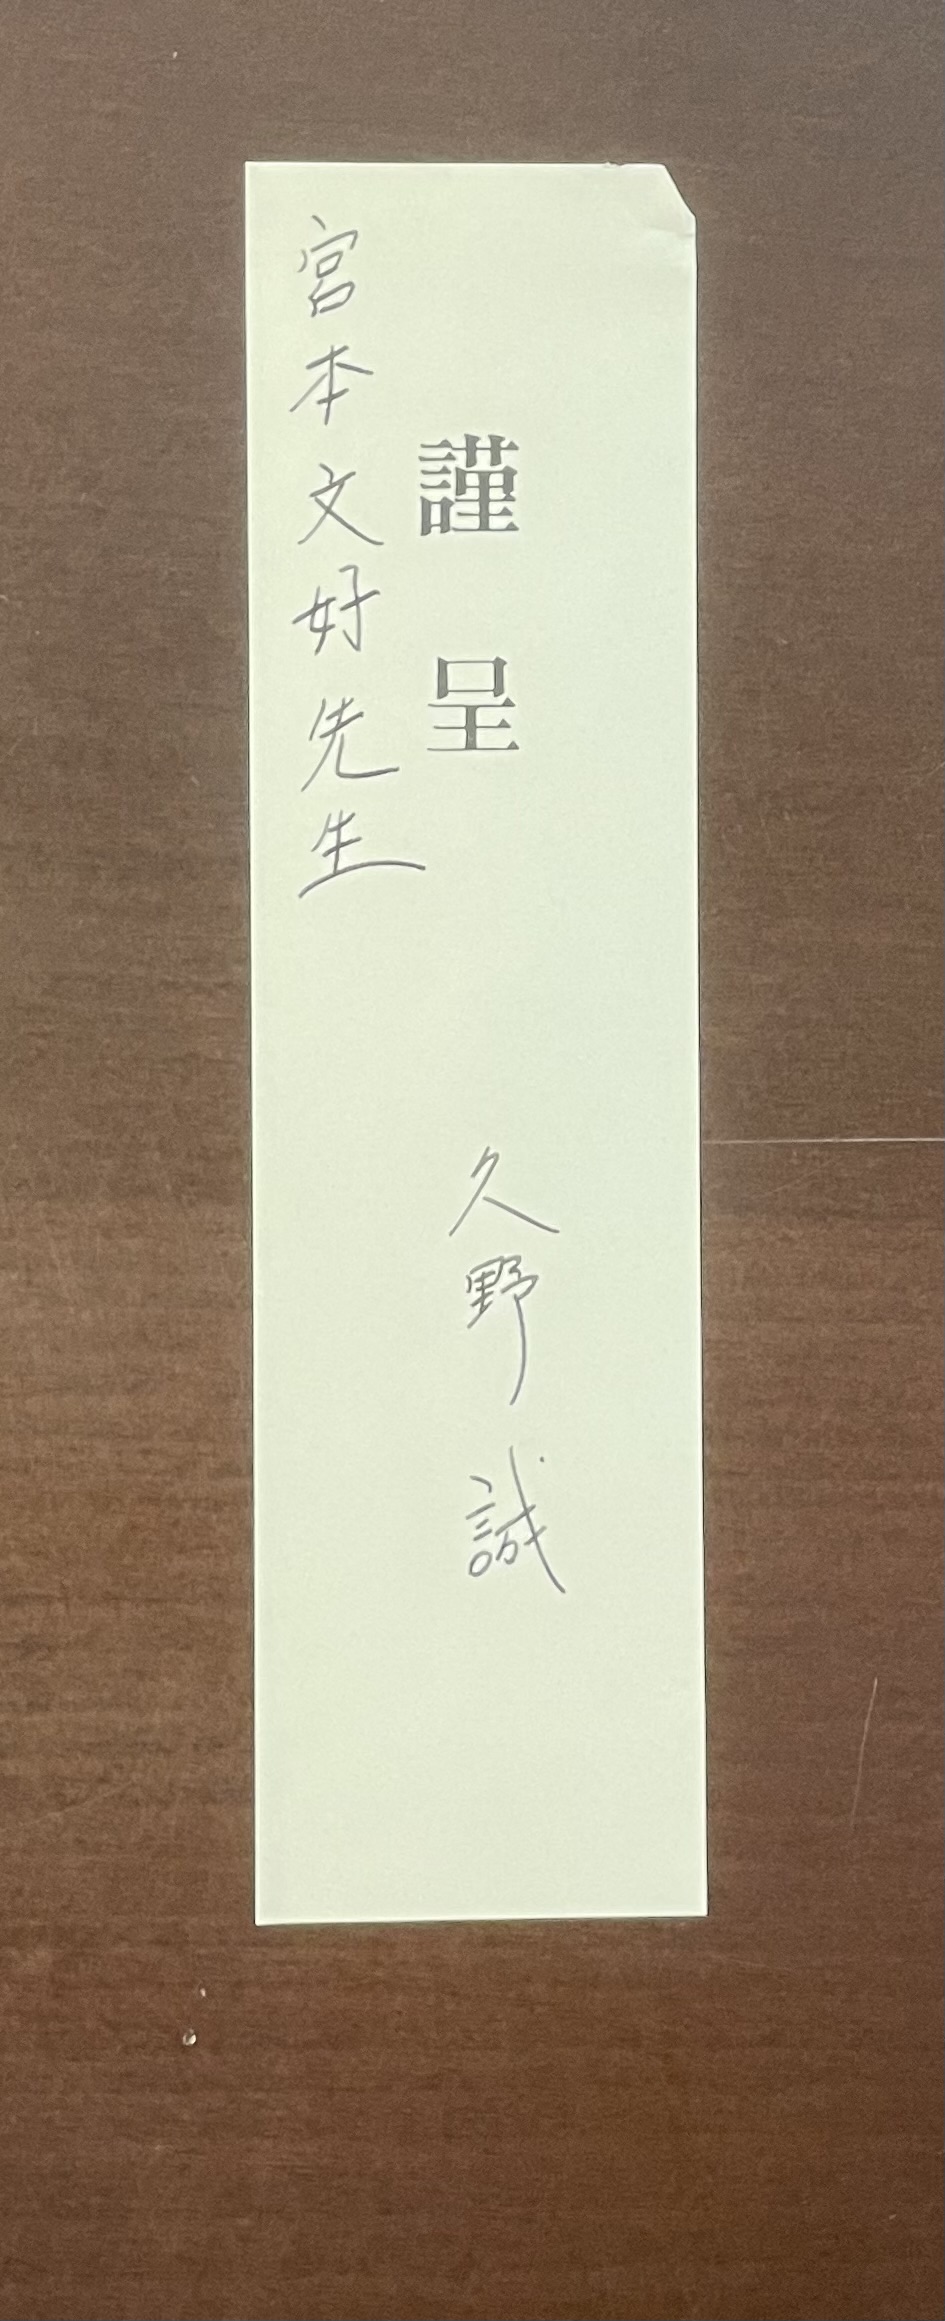 謹呈
久野誠
宮本文好先生